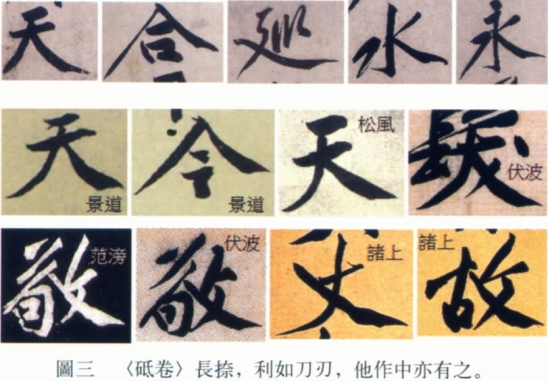 天 合 廵 水 永
天 景道 今 景道 天 松風 髮 伏波
敬 范滂 敬 伏波 丈 諸上 故 諸上
圖三　〈砥卷〉長捺，利如刀刃，他作中亦有之。